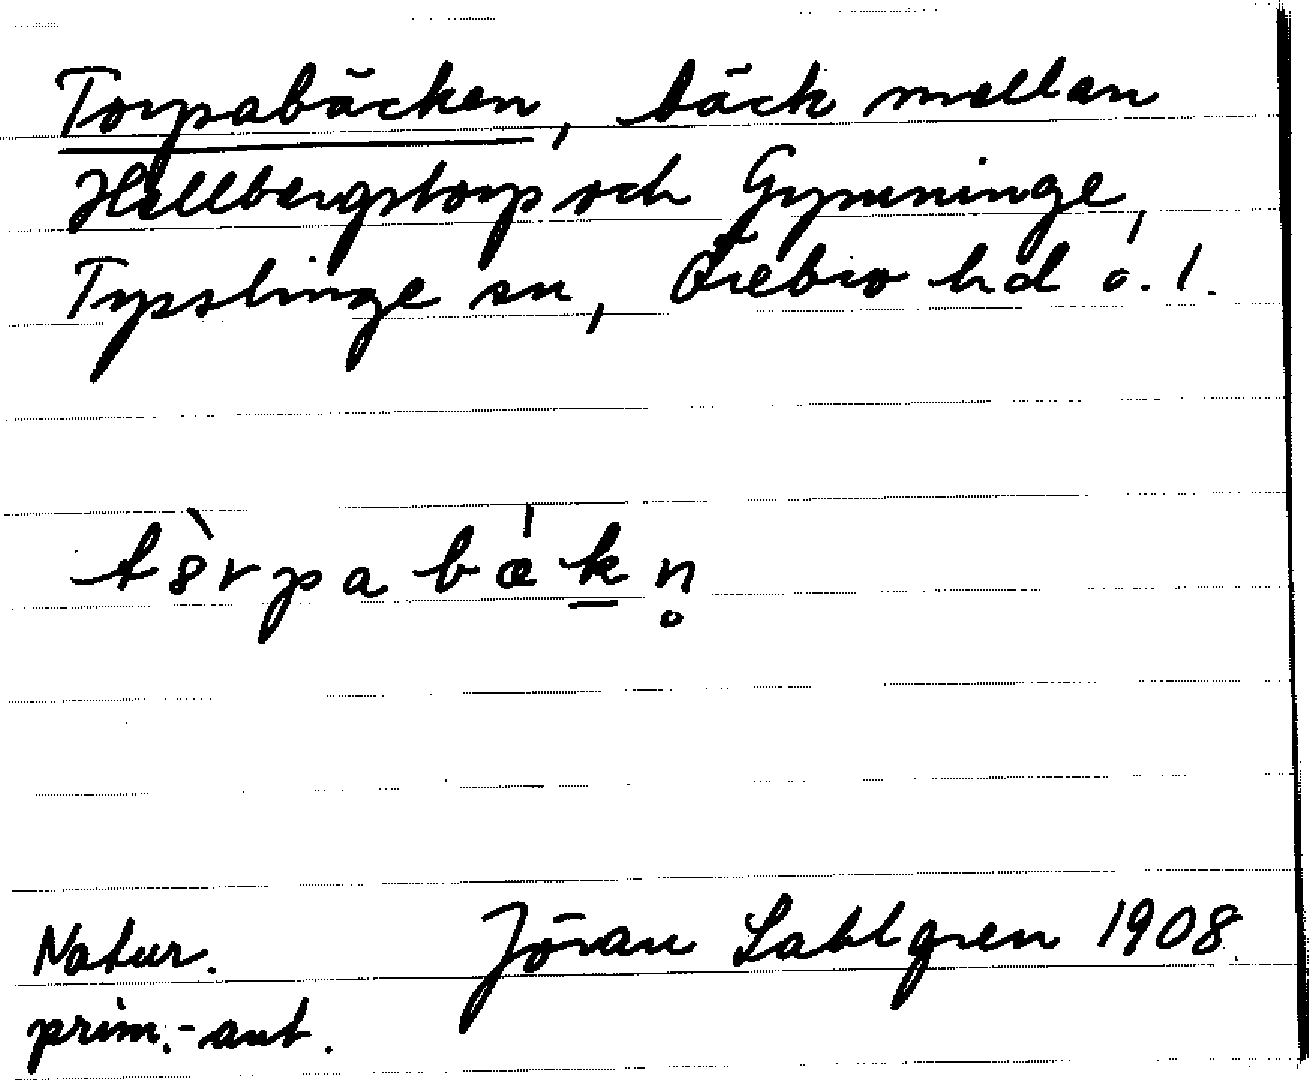 Torpabäcken, bäck mellan
Hellbergstorp och Gymninge,
Tysslinge sn, Örebro hd ö. l.
tȣ̀rpabǽḵn̥
Natur. Jöran Sahlgren 1908.
prim.-ant.